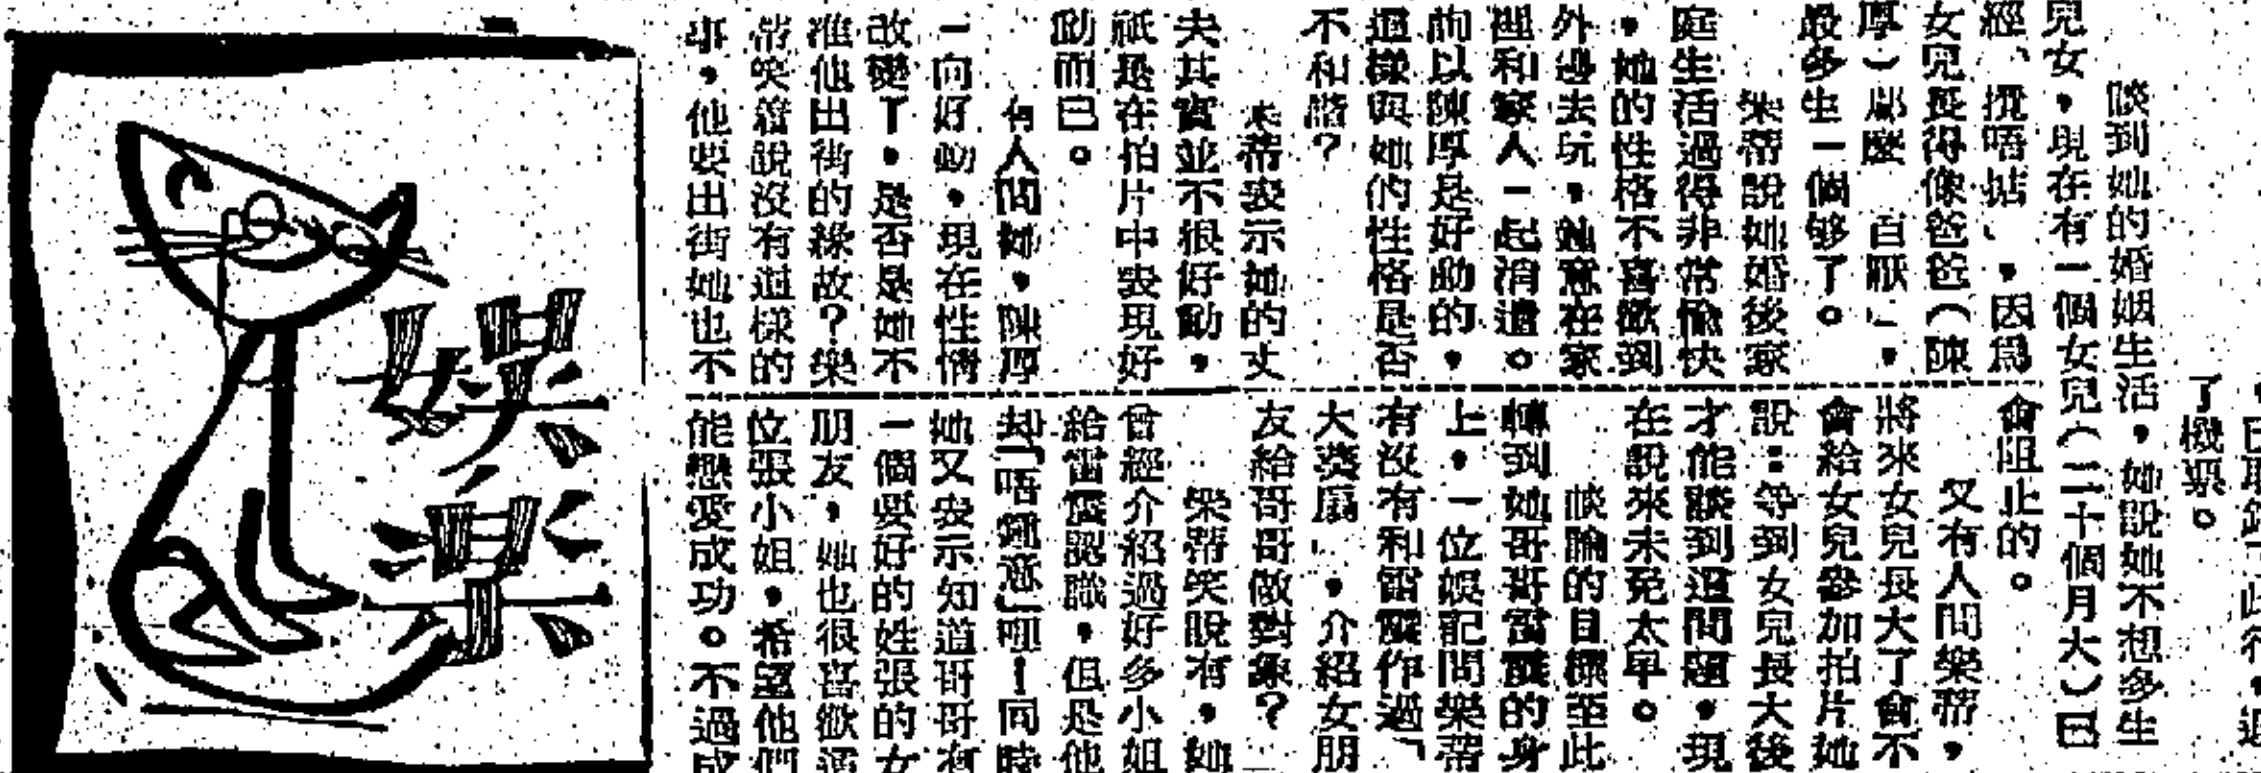 了機票。
談到她的婚姻生活，她說她不想多生
兒女，現在有一個女兒（二十個月大）已
經、攪唔掂」，因爲
女兒長得像爸爸（陳
厚）那麼「百厭」，
最多生一個够了。
樂蒂說她婚後家
庭生活過得非常愉快
，她的性格不喜歡到
外邊去玩，她意在家
裡和家人一起消遣。
而以陳厚是好動的，
這樣與她的性格是否
不和諧？
樂蒂表示她的丈
夫其實並不很好動，
祇是在拍片中表現好
動而已。
有人問她，陳厚
一向好動，現在性情
改變了，是否是她不
准他出街的緣故？樂
蒂笑着說沒有這樣的
事，他要出街她也不
會阻止的。
又有人問樂蒂，
將來女兒長大了會不
會給女兒參加拍片她
說：等到女兒長大後
才能談到這問題，現
在說來未免太早。
談論的目標至此
轉到她哥哥雷震的身
上，一位娛記問樂蒂
有沒有和雷震作過「
大葵扇」，介紹女朋
友給哥哥做對象？
樂蒂笑說有，她
曾經介紹過好多小姐
給雷震認識，但是他
却「唔鍾意」哩！同時
她又表示知道哥哥有
一個要好的姓張的女
朋友，她也很喜歡這
位張小姐，希望他們
能戀愛成功。不過成
娛樂